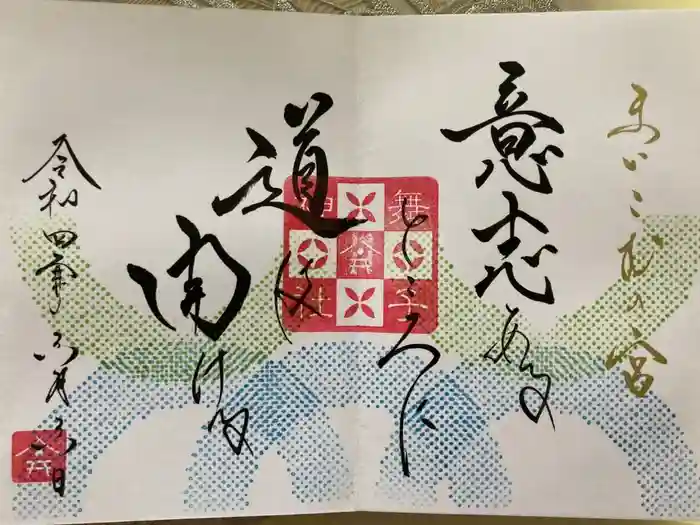 まいこむの宮
意志ある
ところに
道は
開ける
令和四年六月六日
舞子
六
神社